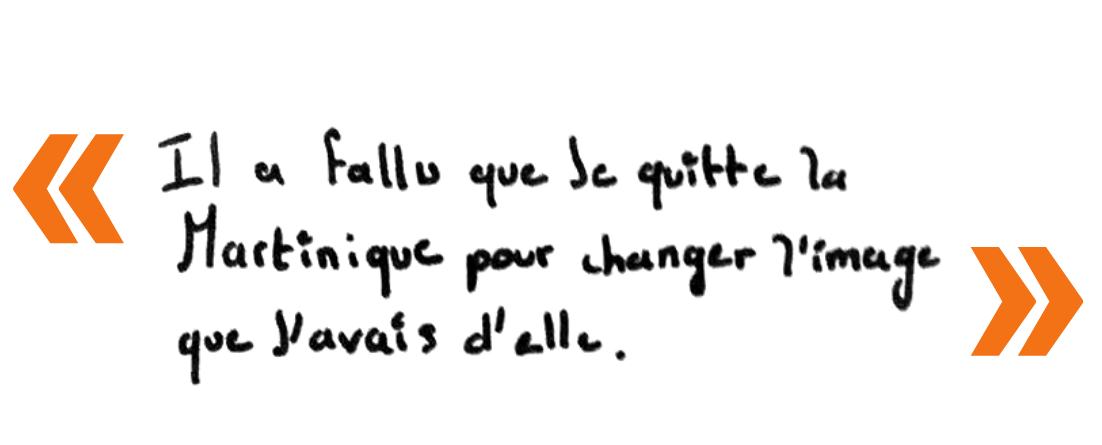 « Il a fallu que je quitte la
Martinique pour changer l'image
que j'avais d'elle. »